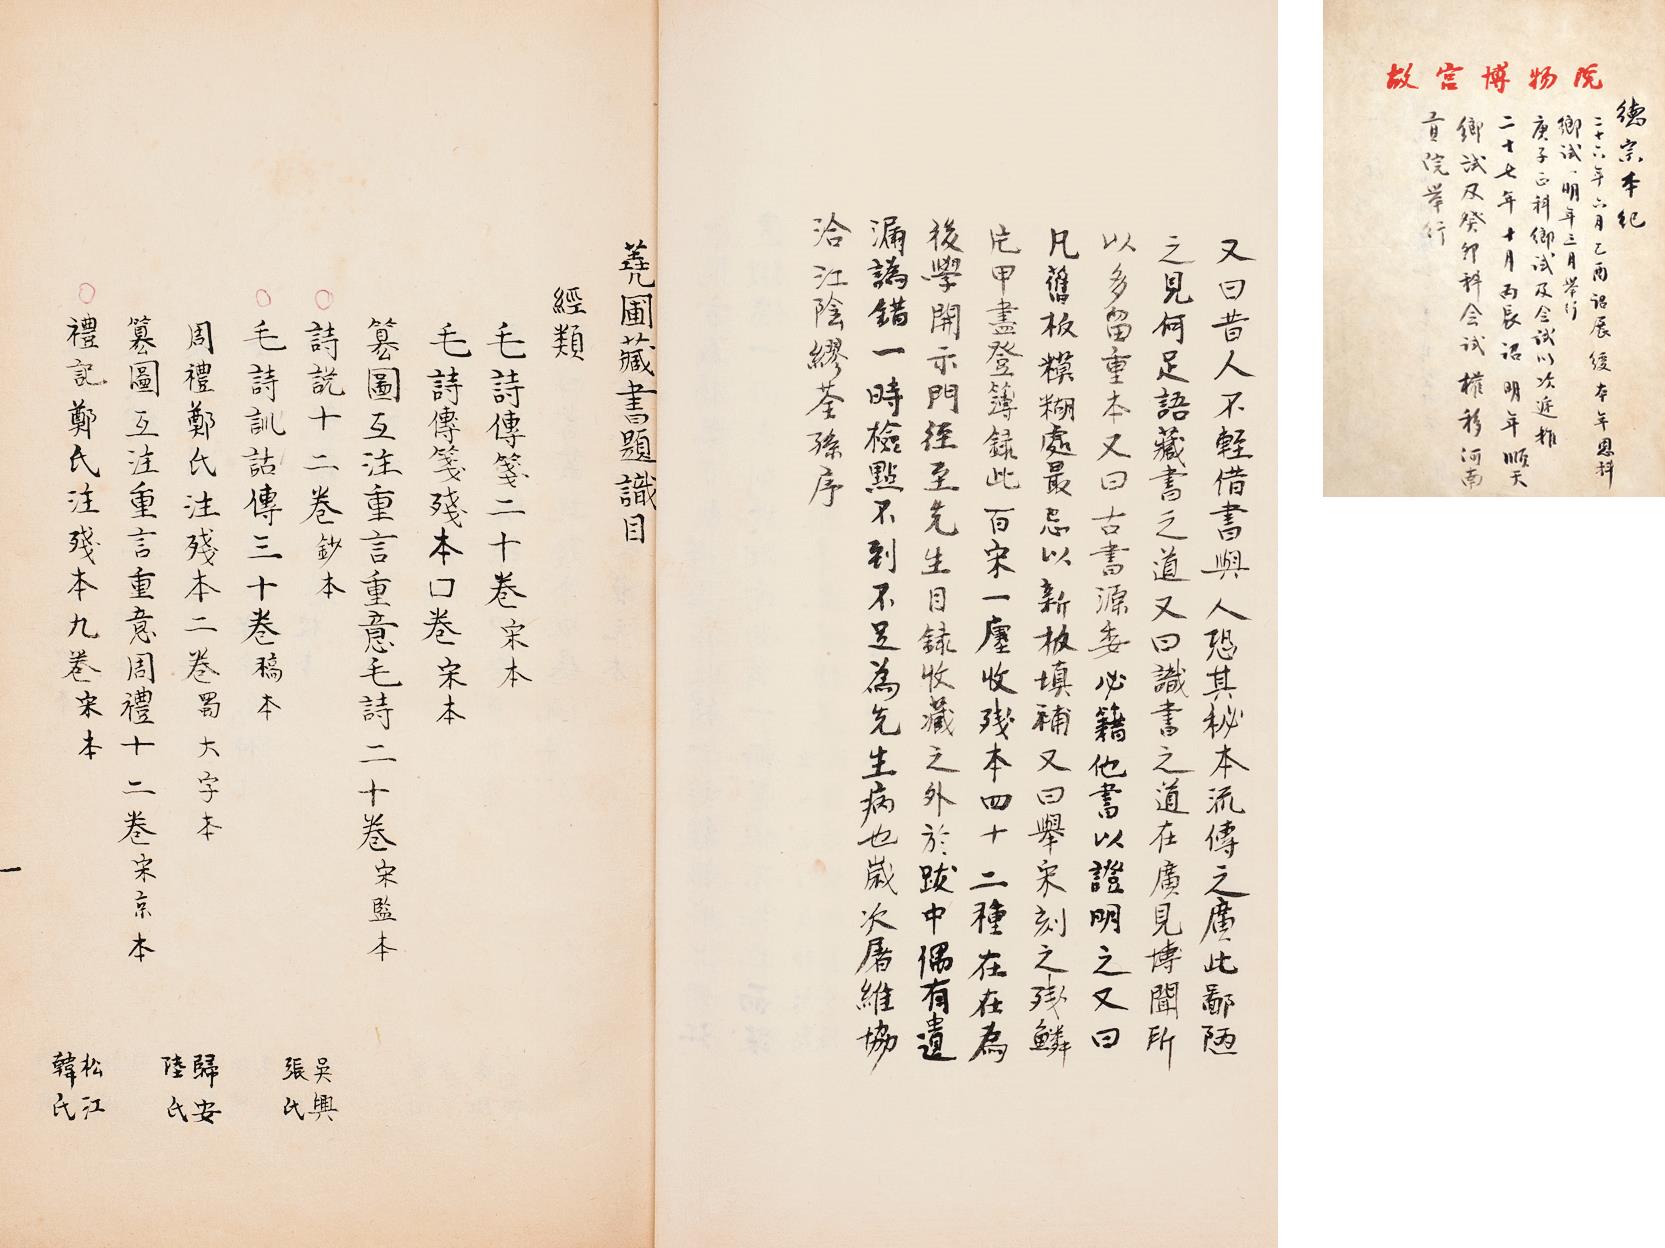 又曰昔人不輕借書與人恐其秘本流傳之廣此鄙陋
之見何足語藏書之道又曰識書之道在廣見博聞所
以多留重本又曰古書源委必籍他書以證明之又曰
凡舊板糢糊處最忌以新板填補又曰舉宋刻之殘鱗
片甲盡登簿録此百宋一廛收殘本四十二種在在為
後學開示門徑至先生目録收藏之外於跋中偶有遺
漏譌錯一時檢點不到不足為先生病也歲次屠維協
洽江陰繆荃孫序
蕘圃藏書題識目
經類
毛詩傳箋二十卷宋本
毛詩傳箋殘本口卷宋本
篡圖互注重言重意毛詩二十卷宋監本
詩説十二卷鈔本 吳興張氏
毛詩訓詁傳三十卷稿本
周禮鄭氏注殘本二卷蜀大字本 歸安陸氏
篡圖互注重言重意周禮十二卷宋京本
禮記鄭氏注殘本九卷宋本 松江韓氏
故宮博物院
德宗本紀
二十六年六月乙酉詔展後本年恩科
鄉試明年三月舉行
庚子正科鄉試及会試以次遞推
二十七年十月丙辰詔明年順天
鄉試及癸卯科会試權移河南
貢院舉行